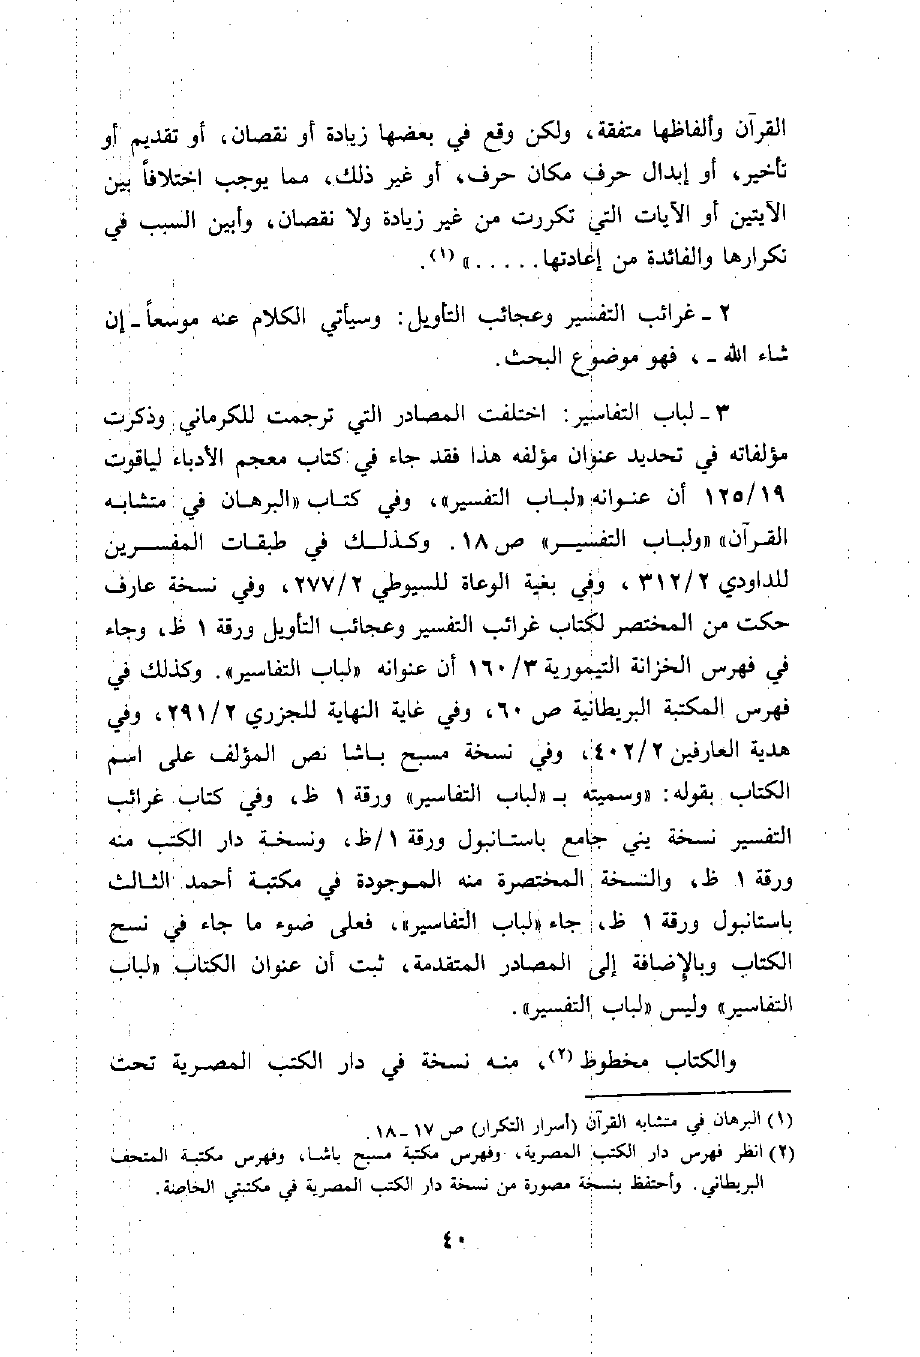 القرآن وألفاظها متفقة، ولكن وقع في بعضها زيادة أو نقصان، أو تقديم أو
تأخير، أو إبدال حرف مكان حرف، أو غير ذلك، مما يوجب اختلافاً بين
الآيتين أو الآيات التي تكررت من غير زيادة ولا نقصان، وأبين السبب في
تكرارها والفائدة من إعادتها.....» (١).
٢ - غرائب التفسير وعجائب التأويل: وسيأتي الكلام عنه موسعاً - إن
شاء الله -، فهو موضوع البحث.
٣ - لباب التفاسير: اختلفت المصادر التي ترجمت للكرماني وذكرت
مؤلفاته في تحديد عنوان مؤلفه هذا فقد جاء في كتاب معجم الأدباء لياقوت
١٢٥/١٩ أن عنوانه «لباب التفسير»، وفي كتاب «البرهان في متشابه
القرآن» «ولباب التفسير» ص ١٨. وكذلك في طبقات المفسرين
للداودي ٣١٢/٢، وفي بغية الوعاة للسيوطي ٢٧٧/٢، وفي نسخة عارف
حكت من المختصر لكتاب غرائب التفسير وعجائب التأويل ورقة ١ ظ، وجاء
في فهرس الخزانة التيمورية ١٦٠/٣ أن عنوانه «لباب التفاسير». وكذلك في
فهرس المكتبة البريطانية ص ٦٠، وفي غاية النهاية للجزري ٢٩١/٢، وفي
هدية العارفين ٤٠٢/٢، وفي نسخة مسيح باشا نص المؤلف على اسم
الكتاب بقوله: «وسميته بـ «لباب التفاسير» ورقة ١ ظ، وفي كتاب غرائب
التفسير نسخة يني جامع باستانبول ورقة ١/ظ، ونسخة دار الكتب منه
ورقة ١ ظ، والنسخة المختصرة منه الموجودة في مكتبة أحمد الثالث
باستانبول ورقة ١ ظ، جاء «لباب التفاسير»، فعلى ضوء ما جاء في نسخ
الكتاب وبالإضافة إلى المصادر المتقدمة، ثبت أن عنوان الكتاب «لباب
التفاسير» وليس «لباب التفسير».
والكتاب مخطوظ (٢)، منه نسخة في دار الكتب المصرية تحت
(١) البرهان في متشابه القرآن (أسرار التكرار) ص ١٧ - ١٨.
(٢) انظر فهرس دار الكتب المصرية، وفهرس مكتبة مسيح باشا، وفهرس مكتبة المتحف
البريطاني. وأحتفظ بنسخة مصورة من نسخة دار الكتب المصرية في مكتبتي الخاصة.
٤٠